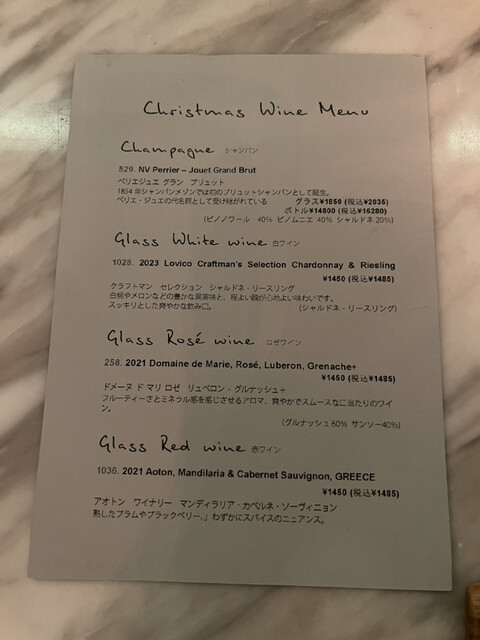 Christmas Wine Menu
Champagne シャンパン
529. NV Perrier – Jouet Grand Brut
ペリエジュエ グラン ブリュット
1854年シャンパンメゾンでは初のブリュットシャンパンとして誕生。
ペリエ・ジュエの代名詞として受け継がれている グラス¥1850 (税込¥2035)
ボトル¥14800 (税込¥16280)
(ピノノワール 40% ピノムニエ 40% シャルドネ 20%)
Glass White wine 白ワイン
1028. 2023 Lovico Craftman's Selection Chardonnay & Riesling
¥1450 (税込¥1485)
クラフトマン セレクション シャルドネ - リースリング
白桃やメロンなどの豊かな果実味と、程よい酸が心地よい味わいです。
スッキリとした爽やかな飲み口。 (シャルドネ - リースリング)
Glass Rosé wine ロゼワイン
258. 2021 Domaine de Marie, Rosé, Luberon, Grenache+
¥1450 (税込¥1485)
ドメーヌ ド マリ ロゼ リュベロン - グルナッシュ+
フルーティーさとミネラル感を感じさせるアロマ、爽やかでスムースな口当たりのワイ
ン。
(グルナッシュ60% サンソー40%)
Glass Red wine 赤ワイン
1036. 2021 Aoton, Mandilaria & Cabernet Sauvignon, GREECE
¥1450 (税込¥1485)
アオトン ワイナリー マンディラリア - カベルネ・ソーヴィニョン
熟したプラムやブラックベリー、」わずかにスパイスのニュアンス。